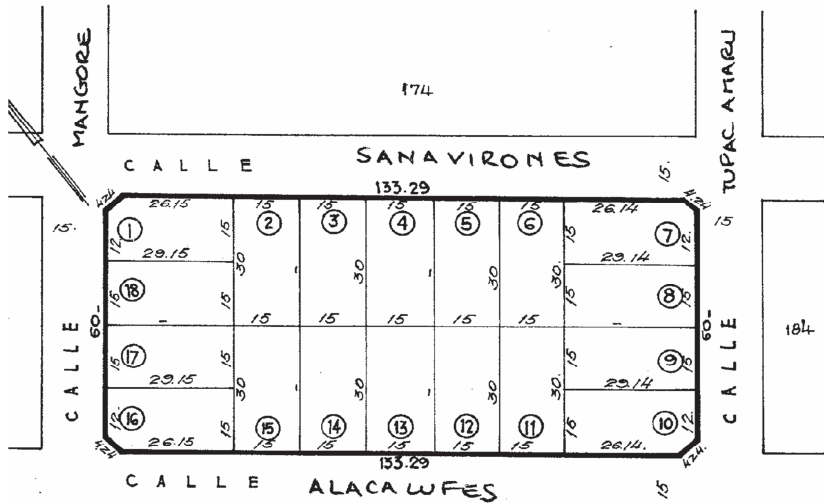 MANGORE
174
TUPAC AMARU
CALLE SANAVIRONES
15.
133.29
4.24 26.15 15 15 15 15 15 26.14 4.24
15. 1 2 3 4 5 6 7 15
12. 15 15 12.
29.15 30 - 30 - 30 30. 29.14
18 8
15 15 15 15
60- - 15 15 15 15 15 - 60- 184
CALLE CALLE
17 9
15 15 15 15
29.15 30 - 30 - 30 30. 29.14
16 15 14 13 12 11 10
12. 15 15 12.
4.24 26.15 15 15 15 15 15 26.14. 4.24.
133.29
CALLE ALACALUFES
15